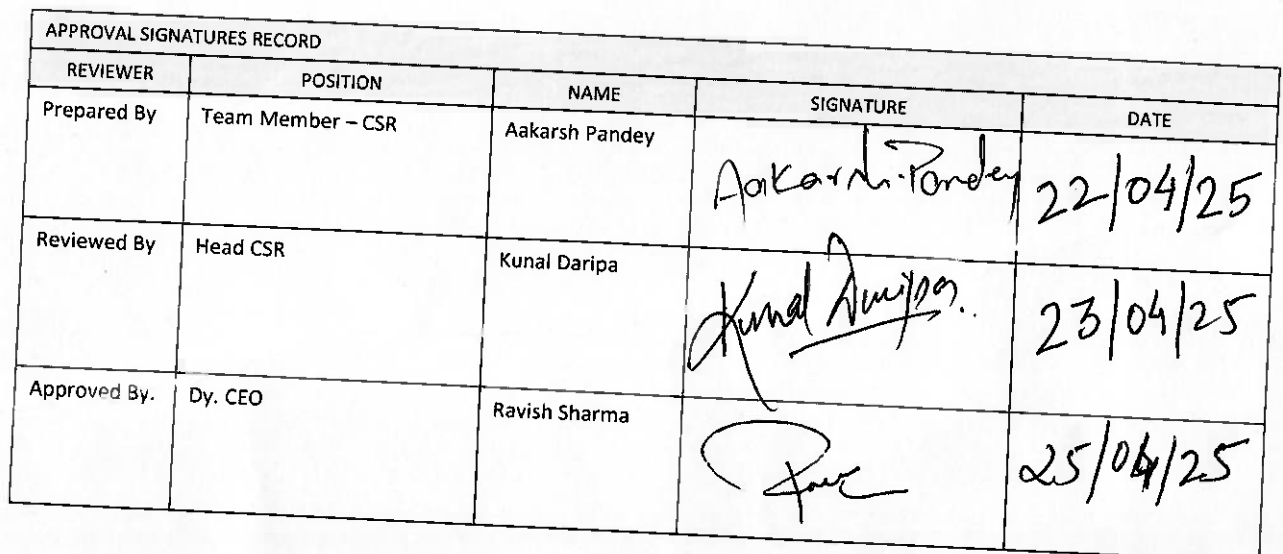 APPROVAL SIGNATURES RECORD
REVIEWER POSITION NAME SIGNATURE DATE
Prepared By Team Member – CSR Aakarsh Pandey Aakarsh Pandey 22/04/25
Reviewed By Head CSR Kunal Daripa Kunal Daripa. 23/04/25
Approved By. Dy. CEO Ravish Sharma 25/04/25